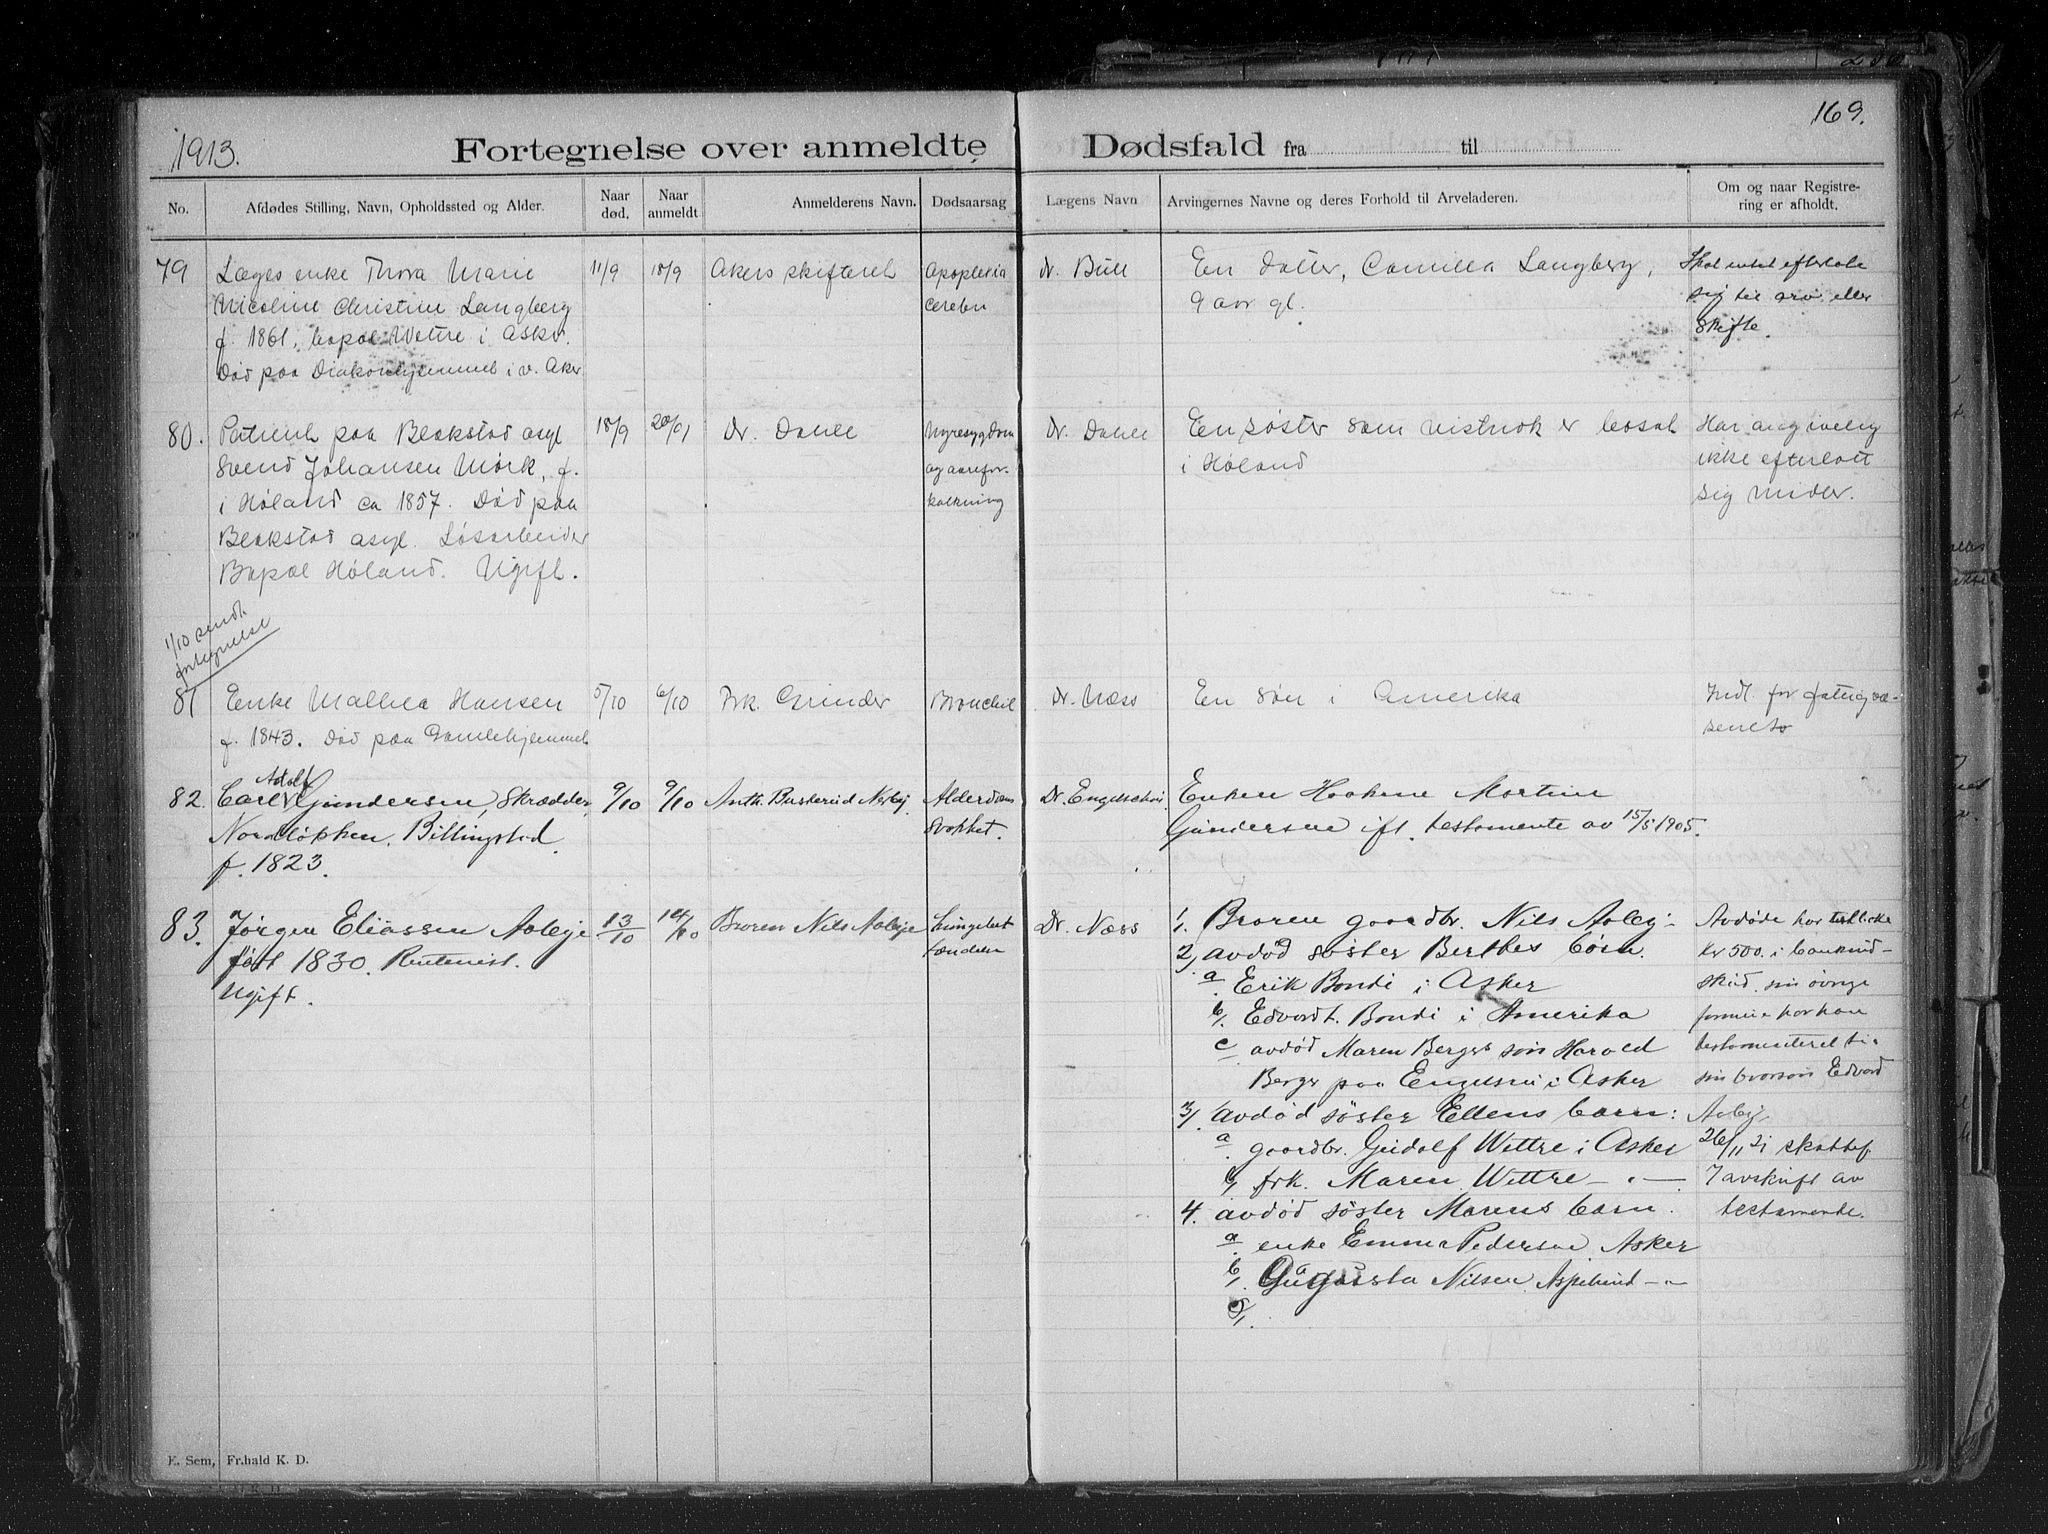 1913.
Fortegnelse over anmeldte Dødsfald fra til
169.
No.
Afdødes Stilling, Navn, Opholdssted og Alder.
Naar død.
Naar anmeldt.
Anmelderens Navn.
Dødsaarsag
Lægens Navn
Arvingernes Navne og deres Forhold til Arveladeren.
Om og naar Registre-
ring er afholdt.
79
Læges enke Thora Marie
Nicoline Christine Langberg
f. 1861, bopæl Wettre i Asker.
Død paa Diakonhjemmet i v. Aker
11/9
18/9
Akers skifteret
Apoplexia
cerebri
Dr. Bull
En datter, Camilla Langberg,
9 aar gl.
Skal intet efterlate
sig til arv eller
skifte.
80.
Patient paa Blakstad asyl
Svend Johansen Mørk, f.
i Høland ca 1857. Død paa
Blakstad asyl. Løsarbeider
Bopæl Høland. Ugift.
18/9
20/9
Dr. Dahle
Nyresygdom
og aarefor-
kalkning
Dr. Dahle
En søster som vistnok er bosat
i Høland
Har angivelig
ikke efterlatt
sig midler.
1/10 sendt
fortegnelse
81
Enke Mathea Hansen
f. 1843. Død paa Gamlehjemmet
5/10
6/10
Frk. Grinder
Bronchit
Dr. Næss
En søn i Amerika
Indl. for fattigvæ-
senets
82.
Adolf
Carl Gundersen, Skrædder,
Nordløkken, Billingstad
f. 1823.
9/10
9/10
Anth. Busterud Nesby
Alderdoms
svakhet.
Dr. Engelschiøn
Enken Hookene Martine
Gundersen ifl. testamente av 15/5 1905.
83.
Jørgen Eliassen Aabye
født 1830. Rentenist.
Ugift.
13/10
14/10
Broren Nils Aabye
Lungebet
tændelse
Dr. Næss
1. Broren gaardbr. Nils Aaby-
2, avdød søster Berthes børn.
a. Erik Bondi i Asker
b, Edvardt. Bondi i Amerika
c avdød Maren Bergs søn Harald
Berger paa Engelsrud i Asker
3, avdød søster Ellens barn:
a. gaardbr. Gudolf Wettre i Asker
b, frk. Maren Wettre - " -
4. avdød søster Marens barn.
a. enke Emma Pedersen, Asker
b, Augusta Nilsen, Aspelund - " -
Avdøde har
kr 500. i bankind-
skud. sin øvrige
formue har han
testamenteret til
sin brorsøn Edvard
Aaby.
26/11 21 skattef.
7 avskrift av
testamente.
E. Sem, Fr.hald K. D.